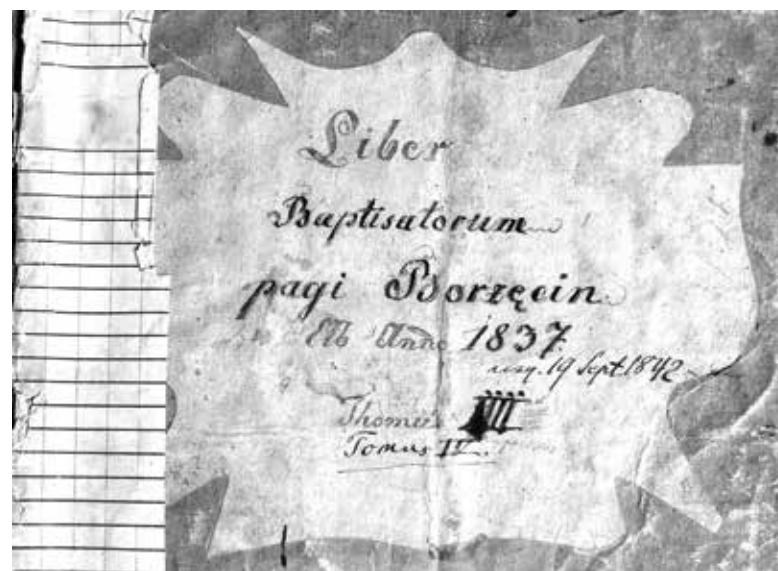 Liber
Baptisatorum
pagi Borzęcin
Ab Anno 1837.
usq. 19 Sept. 1842
Thomus
Tomus IV.